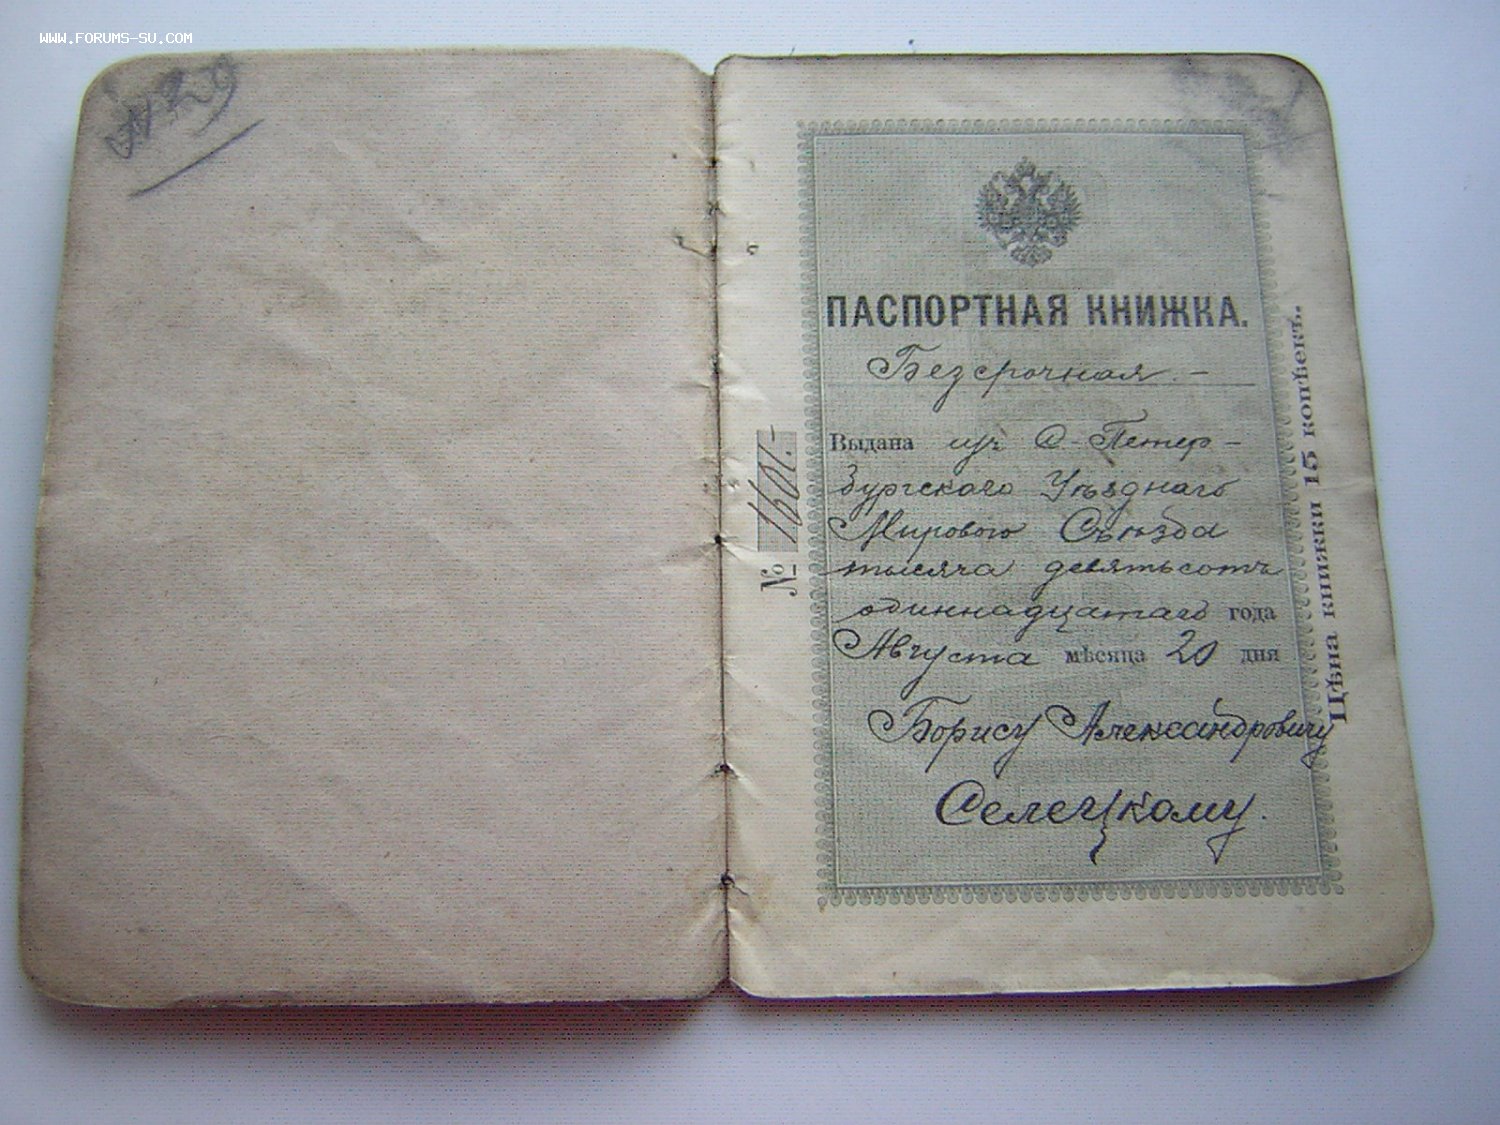 WWW.FORUMS-SU.COM
№ 29
ПАСПОРТНАЯ КНИЖКА.
Безсрочная. –
Выдана изъ С-Петер-
бургскаго Уѣзднаго
Мирового Съѣзда
тысяча девятьсотъ
одиннадцатаго года
Августа мѣсяца 20 дня
Борису Александровичу
Селецкому.
№ 1601.-
Цѣна книжки 15 копѣекъ.